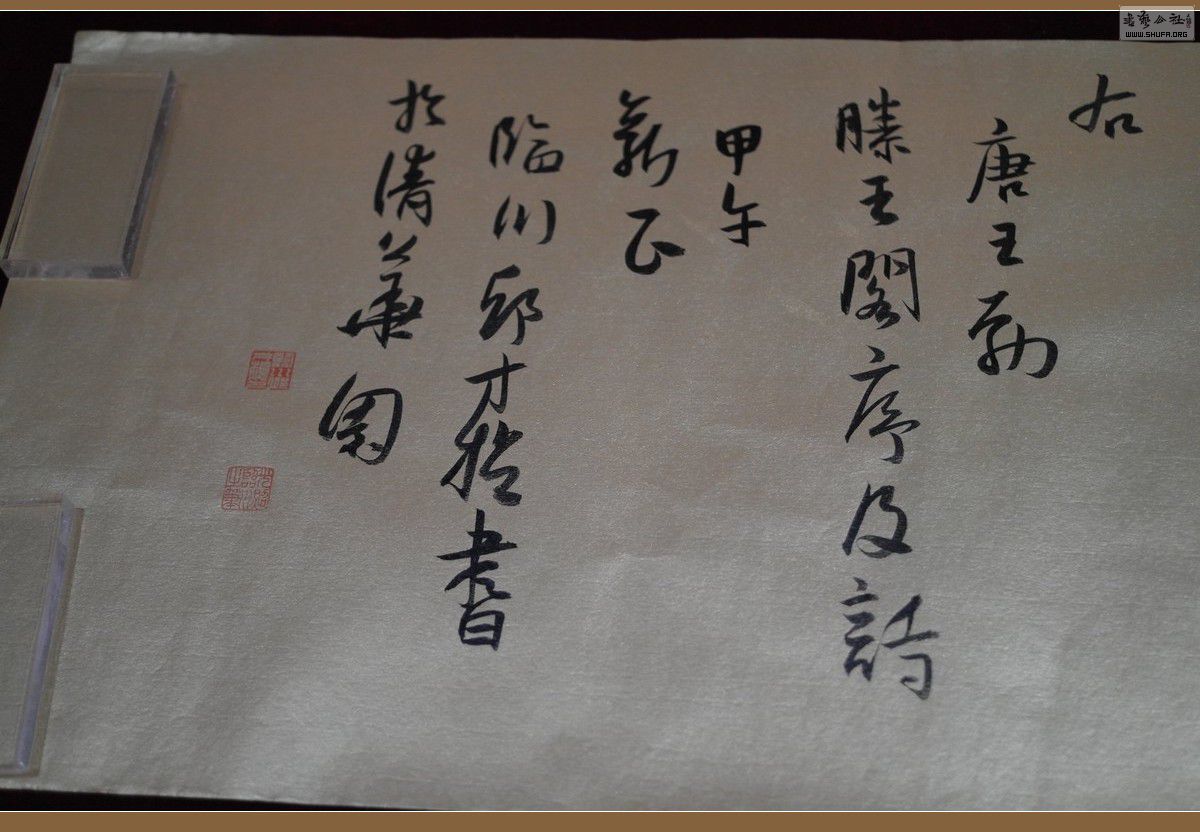 右
唐王勃
滕王閣序及詩
甲午
新正
臨川邱才桢書
於清華園
书艺公社
WWW.SHUFA.ORG